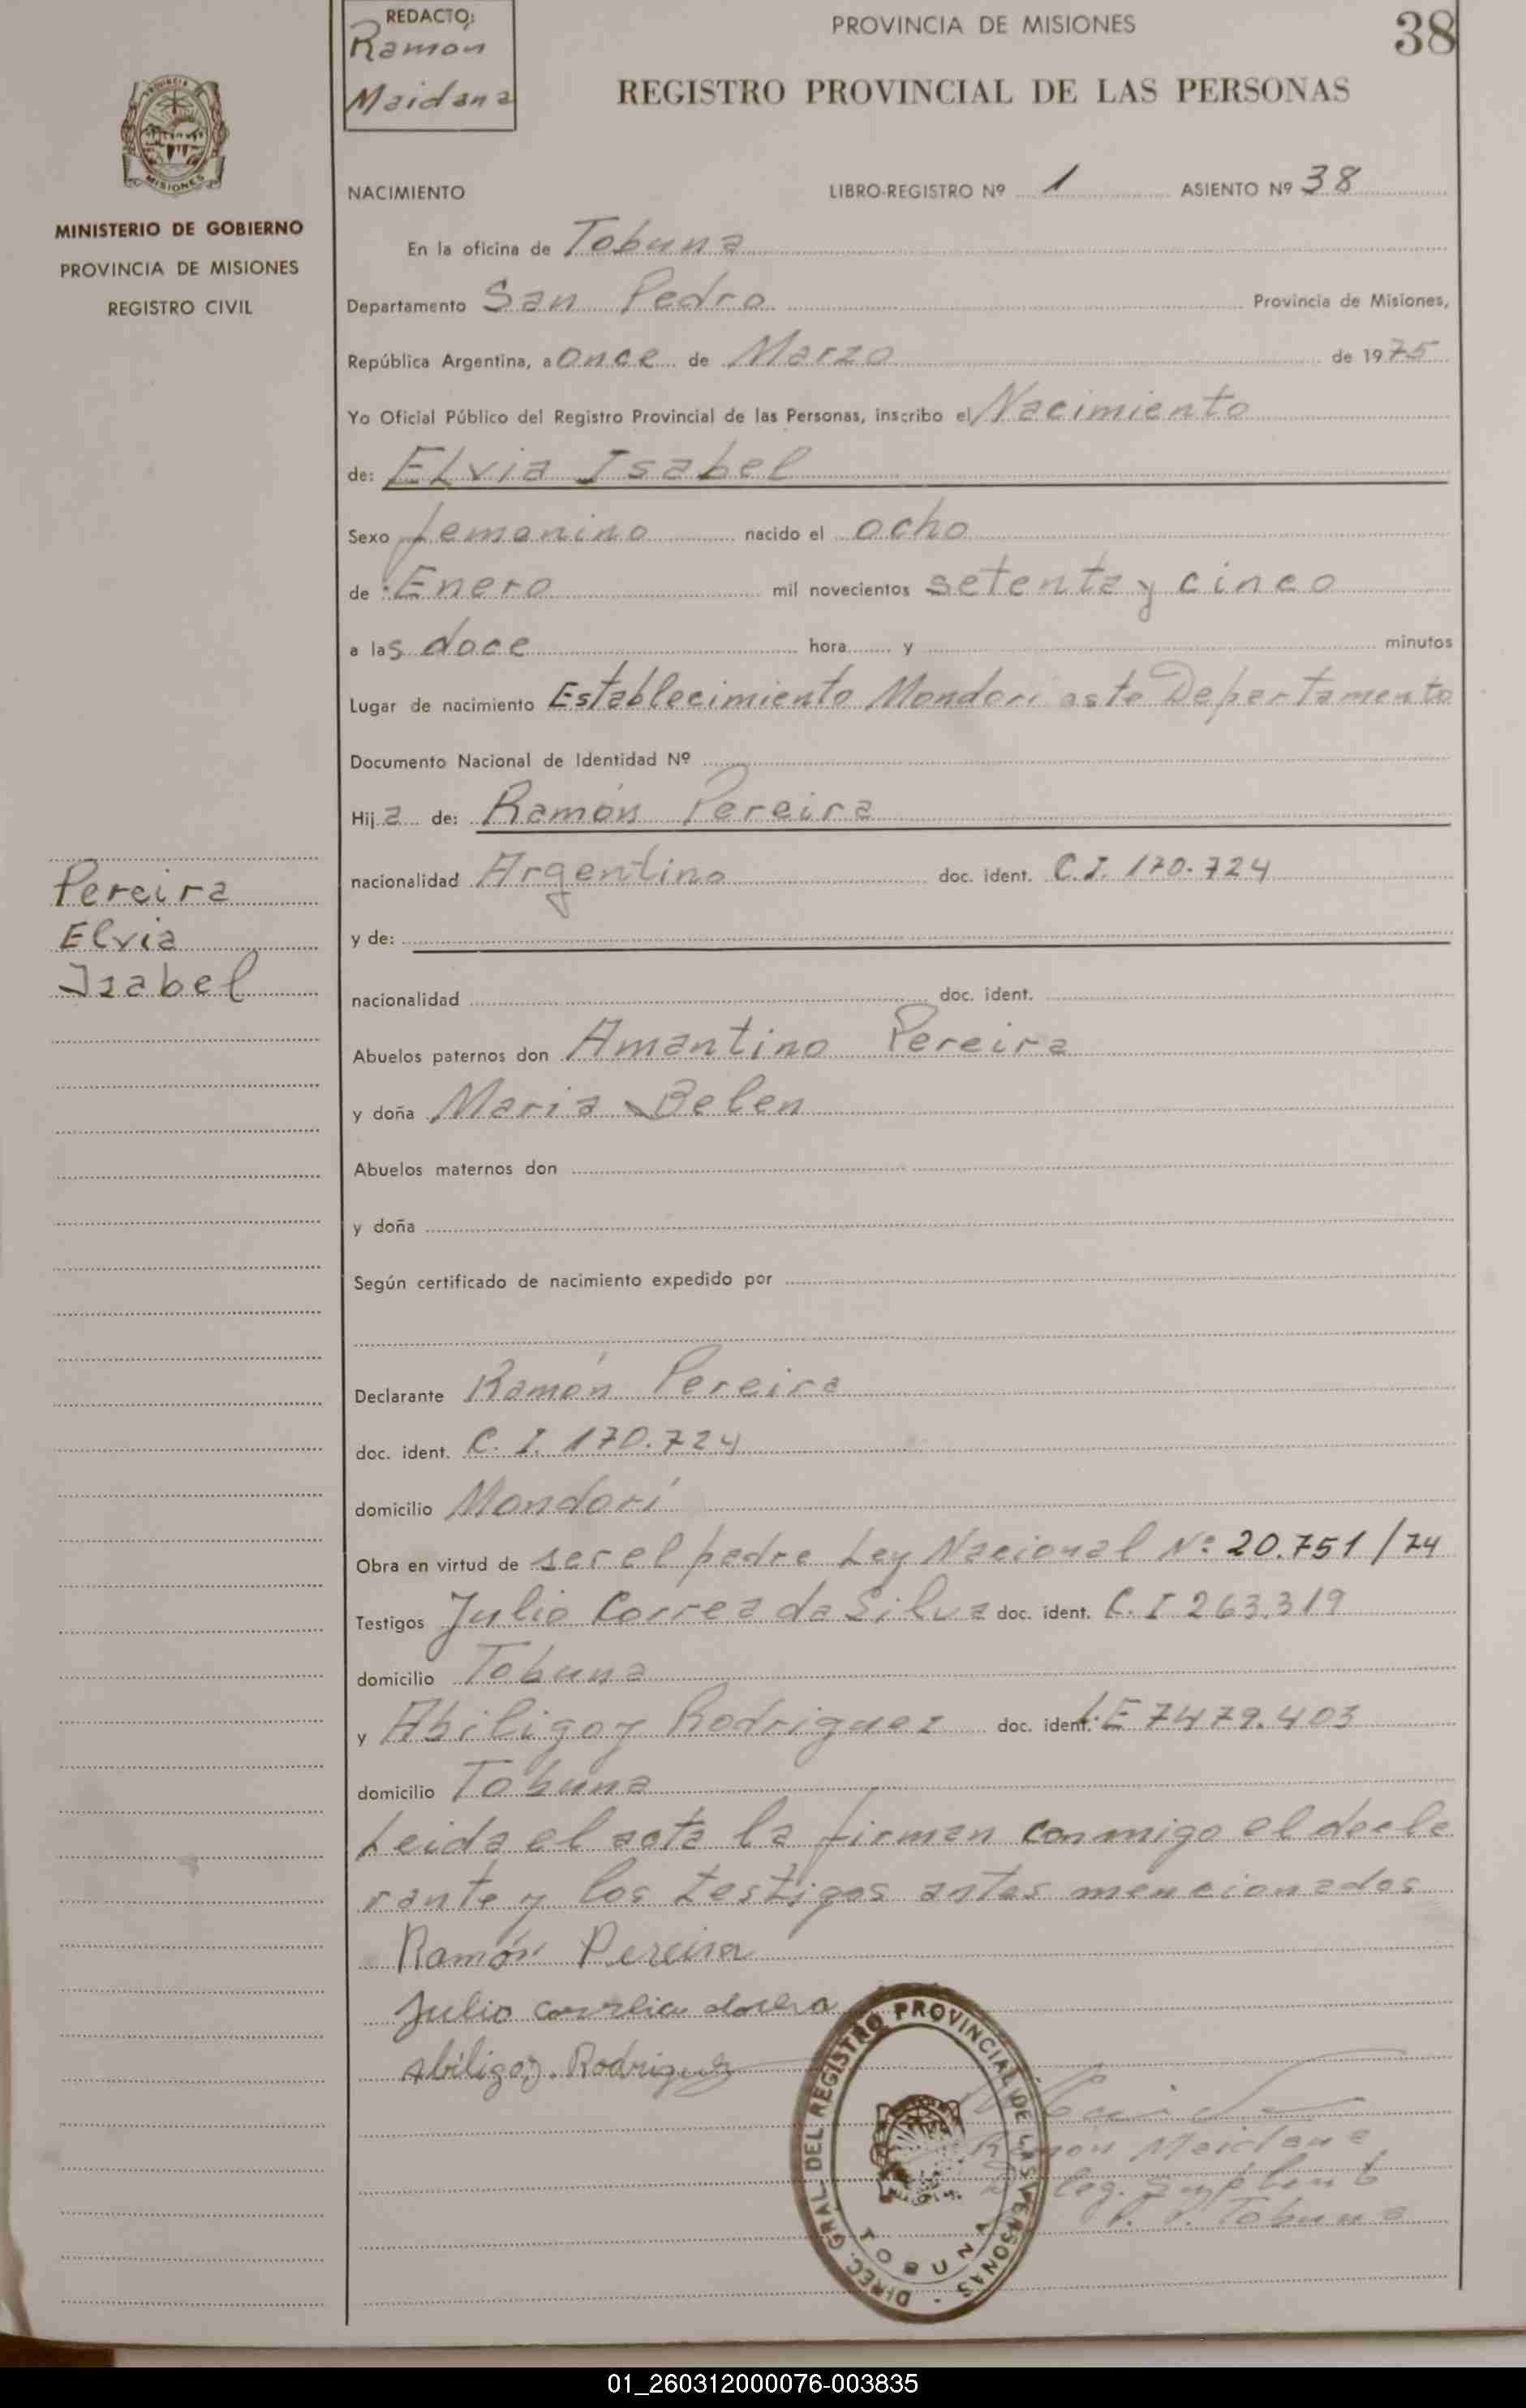 REDACTÓ:
Ramón
Maidana
PROVINCIA DE MISIONES
38
REGISTRO PROVINCIAL DE LAS PERSONAS
MISIONES
MINISTERIO DE GOBIERNO
PROVINCIA DE MISIONES
REGISTRO CIVIL
NACIMIENTO LIBRO-REGISTRO Nº 1 ASIENTO Nº 38
En la oficina de Tobuna
Departamento San Pedro Provincia de Misiones,
República Argentina, a once de Marzo de 1975
Yo Oficial Público del Registro Provincial de las Personas, inscribo el Nacimiento
de: Elvia Isabel
Sexo femenino nacido el ocho
de Enero mil novecientos setenta y cinco
a las doce hora y minutos
Lugar de nacimiento Establecimiento Mondori este Departamento
Documento Nacional de Identidad Nº
Hija de: Ramón Pereira
nacionalidad Argentino doc. ident. C.I. 170.724
y de:
nacionalidad doc. ident.
Pereira
Elvia
Isabel
Abuelos paternos don Amantino Pereira
y doña Maria Belen
Abuelos maternos don
y doña
Según certificado de nacimiento expedido por
Declarante Ramón Pereira
doc. ident. C. I. 170.724
domicilio Mondorí
Obra en virtud de ser el padre Ley Nacional Nº 20.751/74
Testigos Julio Correa da Silva doc. ident. C. I 263.319
domicilio Tobuna
y Abiligoy Rodriguez doc. ident. L.E 7479.403
domicilio Tobuna
Leida el acta la firman conmigo el decla
rante y los testigos antes mencionados
Ramón Pereira
Julio
Abiligoy. Rodriguez
DIREC. GRAL. DEL REGISTRO PROVINCIAL DE LAS PERSONAS
TOBUNA
Ramón Maidana
Tobuna
01_260312000076-003835